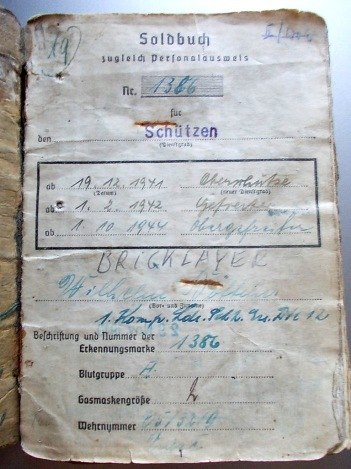 19
Soldbuch
zugleich Personalausweis
Nr. 1386
für
den Schützen
(Dienstgrad)
ab 19.12.1941 Oberschütze
(Datum) (neuer Dienstgrad)
ab 1.2.1942 Gefreiter
ab 1.10.1944 Obergefreiter
BRICKLAYER
Wilhelm
(Vor- und Zuname)
1. Komp.
Beschriftung und Nummer der
Erkennungsmarke 1386
Blutgruppe A
Gasmaskengröße 2
Wehrnummer